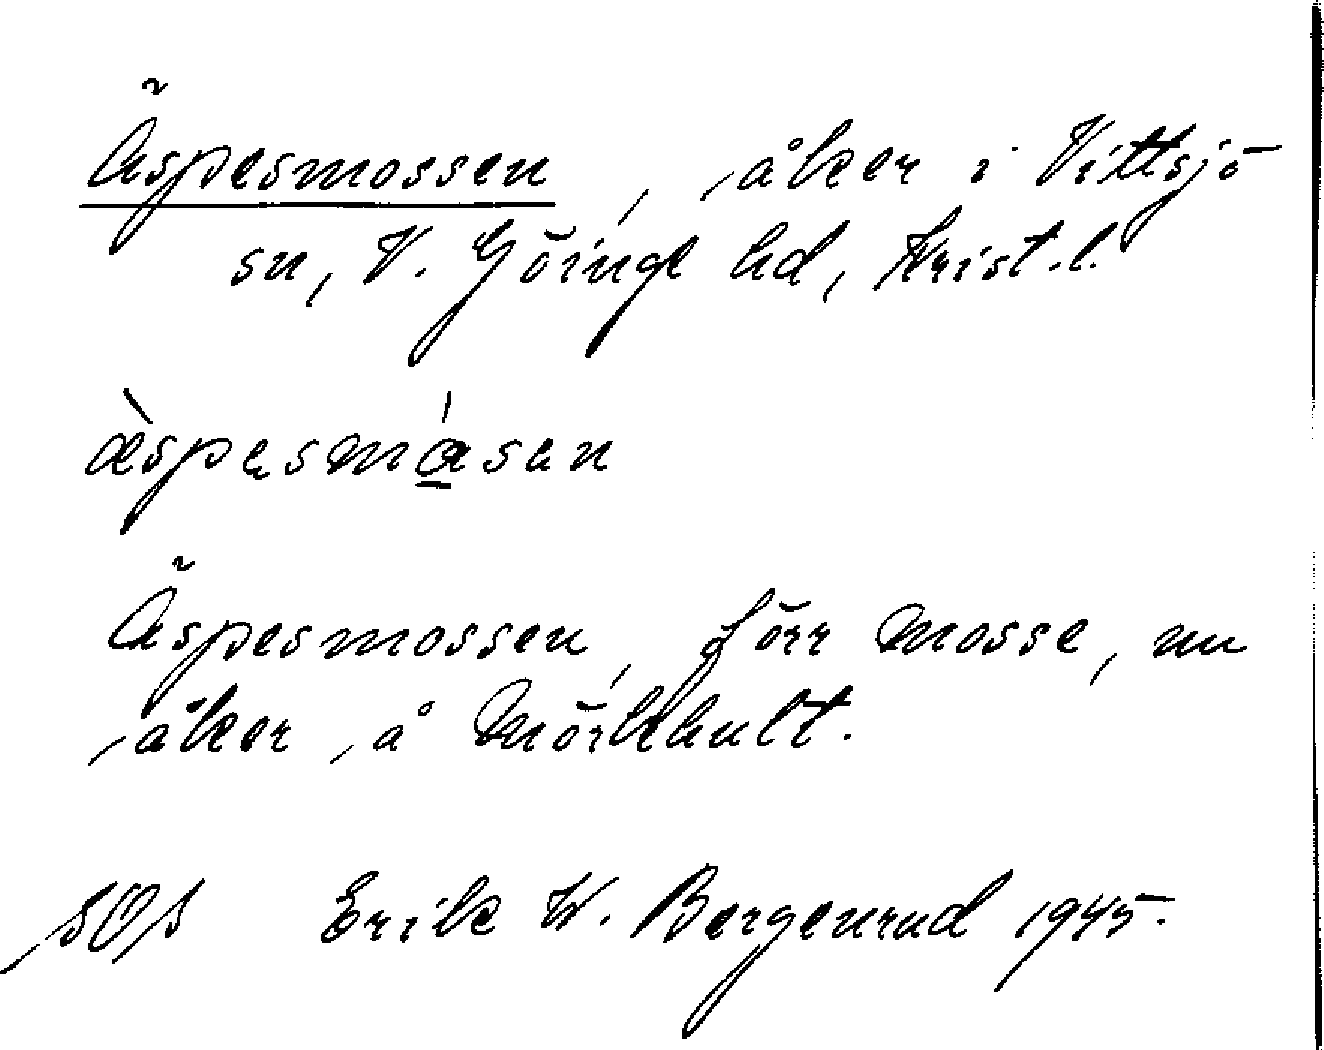 Äspesmossen, åker i Vittsjö
sn, V. Göinge hd, Krist. l.
æ̀spesmósen
Äspesmossen, förr mosse, nu
åker å Mörkhult.
SOS Erik W. Bergenrud 1945.